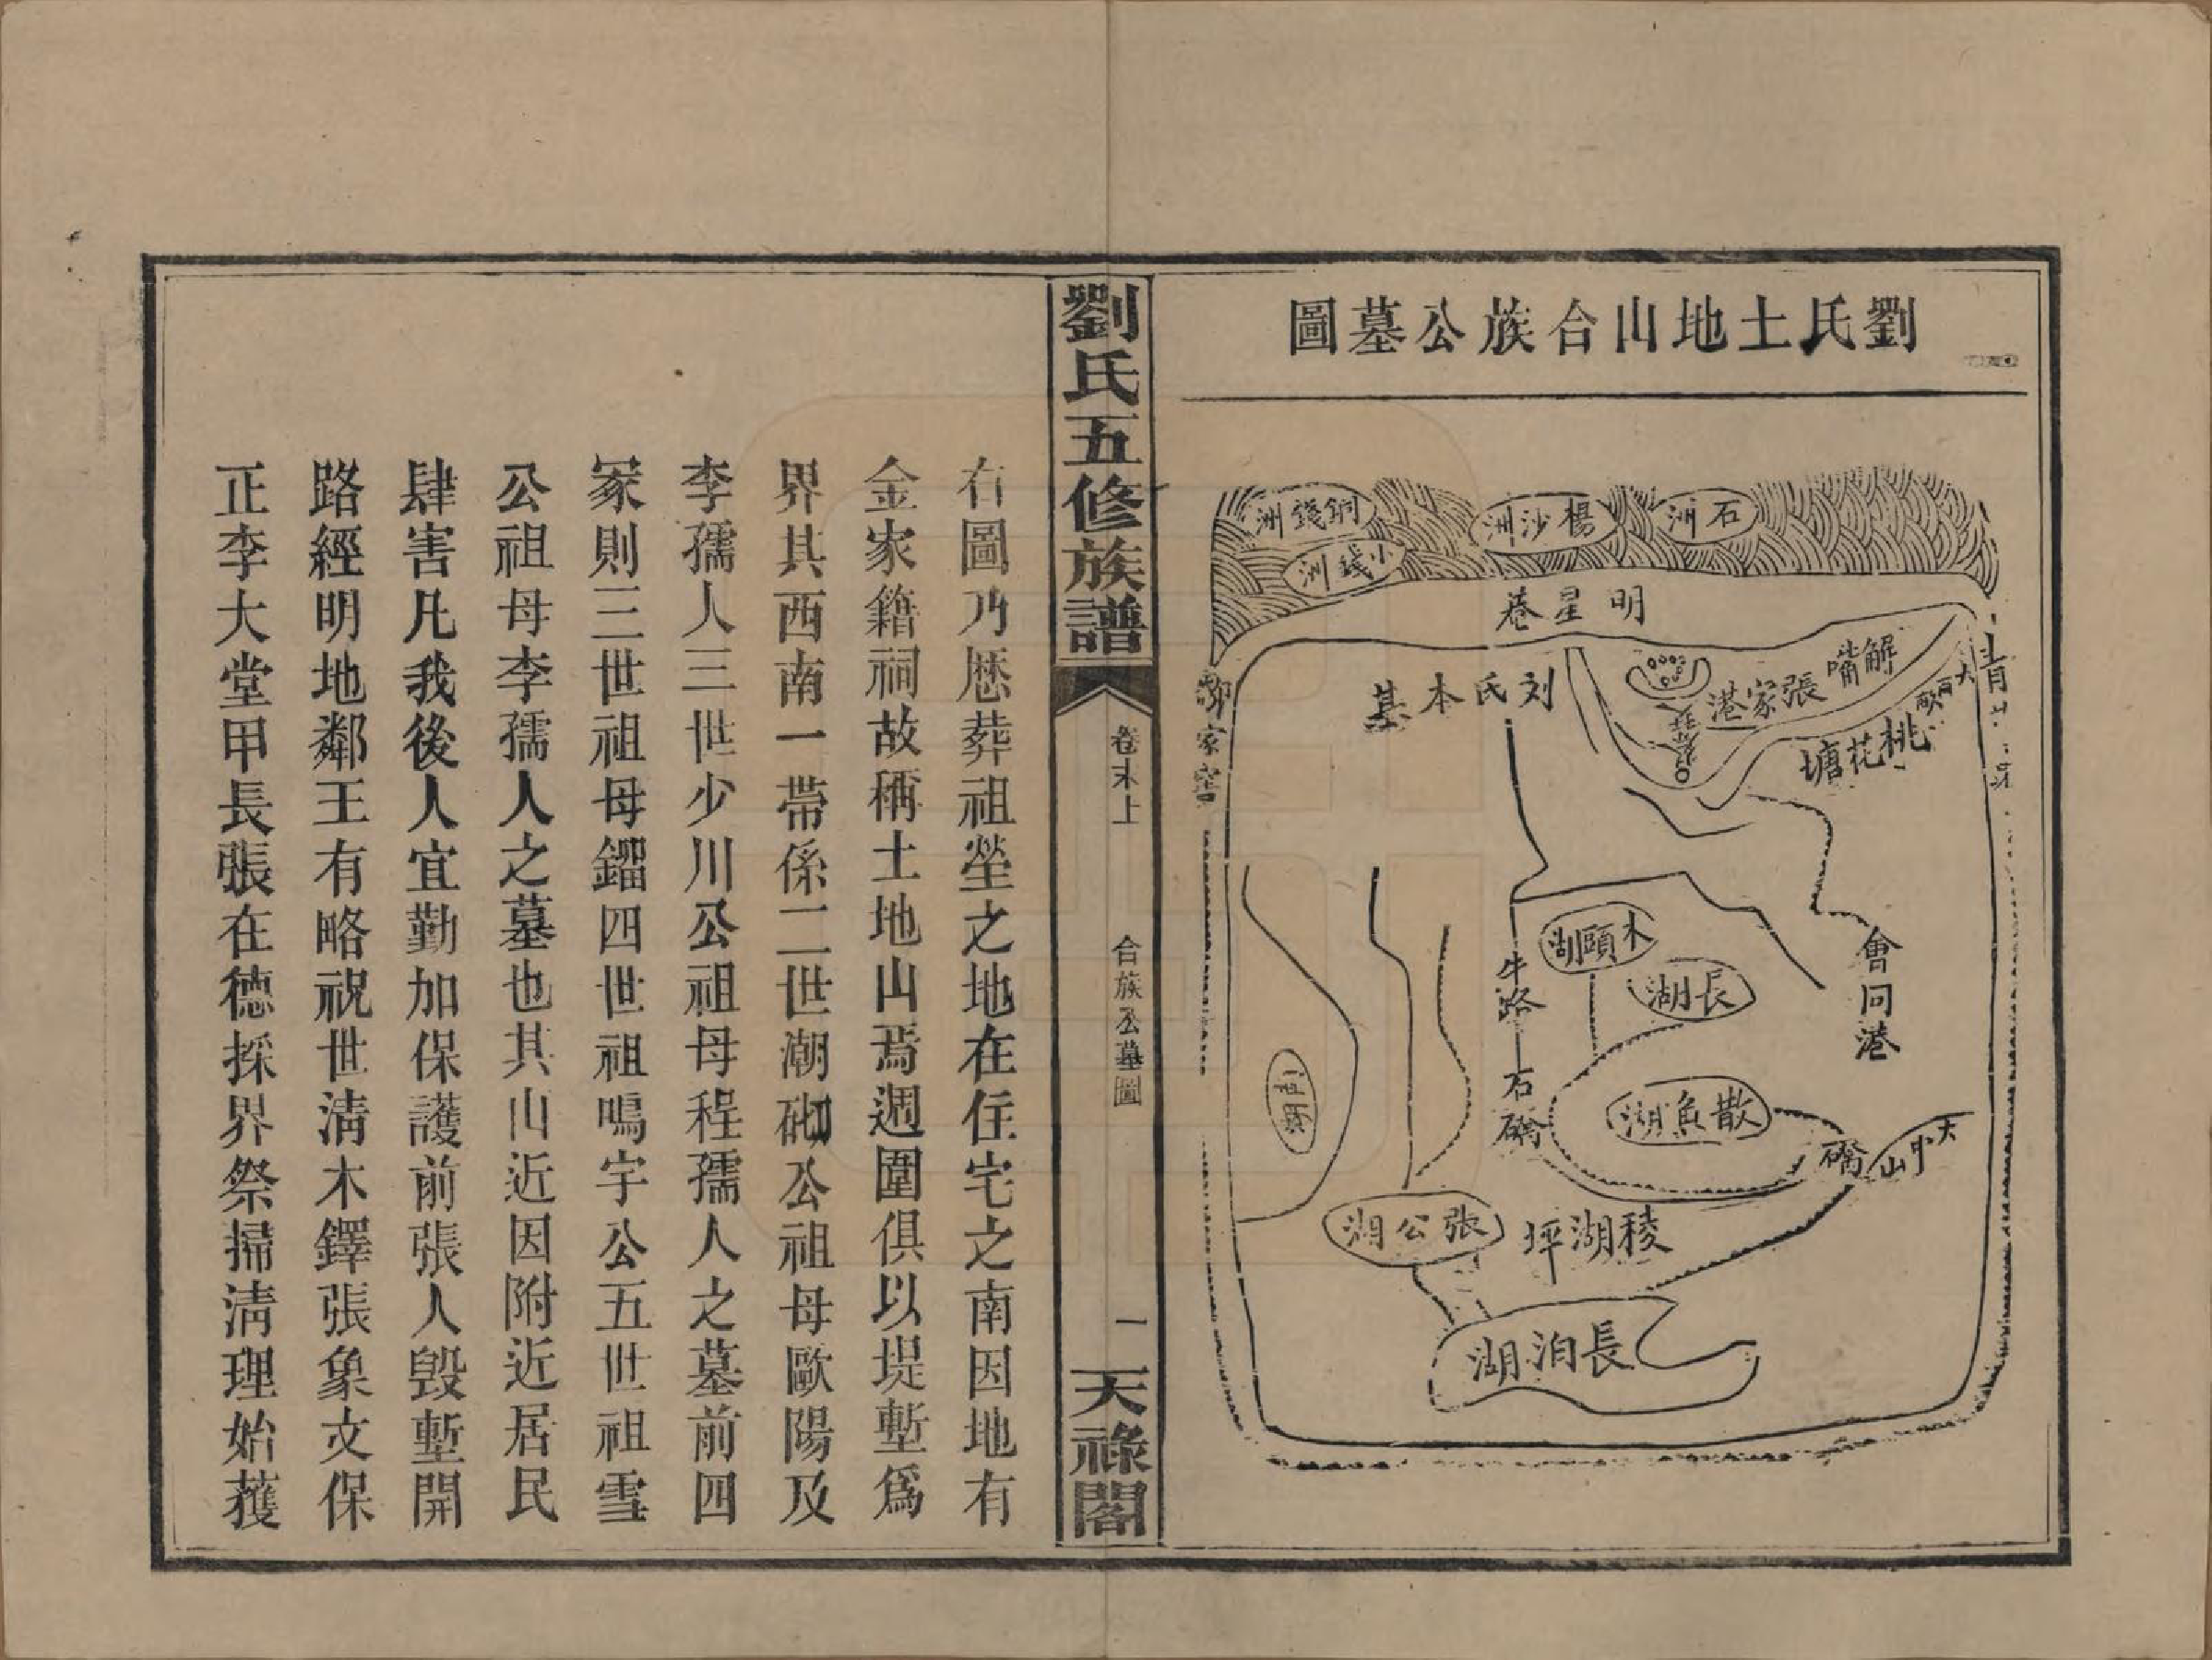 劉氏土地山合族公墓圖
石洲
楊沙洲
銅錢洲
小錢洲
明星巷
刘氏本基
解嘴
張家港
大百畝
桃花塘
會同港
木頤湖
長湖
牛路
石礄
散魚湖
礄
張公湖
稜湖坪
長泊湖
劉氏五修族譜
卷末上
合族公墓圖
一
天祿閣
右圖乃歷葬祖塋之地在住宅之南因地有
金家籍祠故稱土地山焉週圍俱以堤塹爲
界其西南一帶係二世潮砌公祖母歐陽及
李孺人三世少川公祖母程孺人之墓前四
冢則三世祖母鑼四世祖鳴宇公五世祖雪
公祖母李孺人之墓也其山近因附近居民
肆害凡我後人宜勤加保護前張人毀塹開
路經明地鄰王有略祝世淸木鐸張象文保
正李大堂甲長張在德採界祭掃淸理始獲